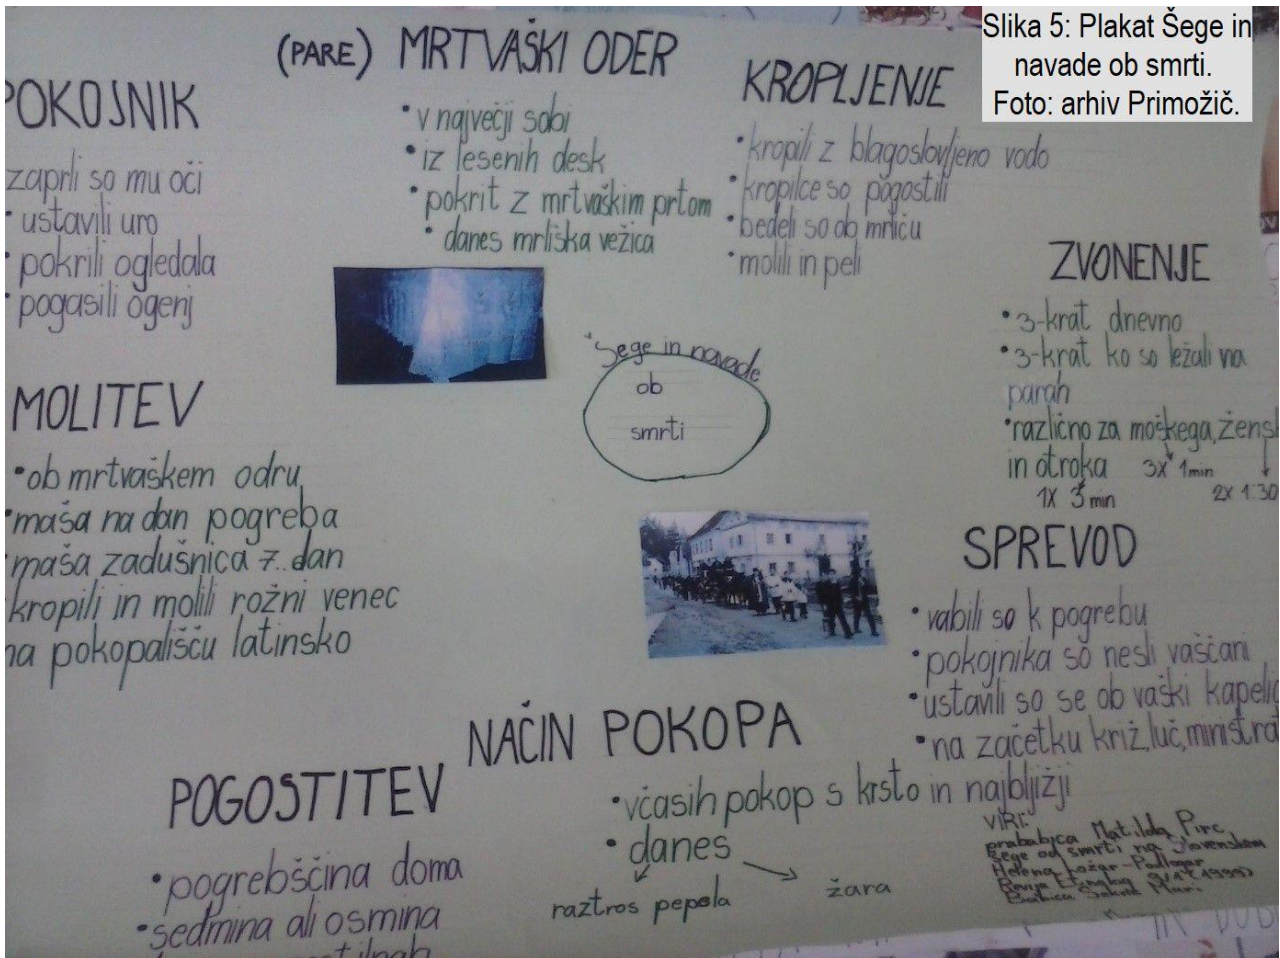 Slika 5: Plakat Šege in
navade ob smrti.
Foto: arhiv Primožič.
POKOJNIK
zaprli so mu oči
• ustavili uro
• pokrili ogledala
• pogasili ogenj
(PARE) MRTVAŠKI ODER
• v največji sobi
• iz lesenih desk
• pokrit z mrtvaškim prtom
• danes mrliška vežica
KROPLJENJE
• kropili z blagoslovljeno vodo
• kropilce so pogostili
• bedeli so ob mrliču
• molili in peli
ZVONENJE
• 3-krat dnevno
• 3-krat ko so ležali na
parah
• različno za moškega, žensk
in otroka 3X 1min
1X 3 min 2X 1:30
Šege in navade
ob
smrti
MOLITEV
• ob mrtvaškem odru
• maša na dan pogreba
• maša zadušnica 7. dan
kropili in molili rožni venec
na pokopališču latinsko
SPREVOD
• vabili so k pogrebu
• pokojnika so nesli vaščani
• ustavili so se ob vaški kapelic
• na začetku križ, luč, ministra
NAČIN POKOPA
• včasih pokop s krsto in najbližji
• danes
raztros pepela žara
POGOSTITEV
• pogrebščina doma
• sedmina ali osmina
VIRI:
prababica Matilda Pirc
Šege od smrti na Slovenskem
Helena Ložar-Podlogar
Revija Etnolog 9/1 (1999)
Babica